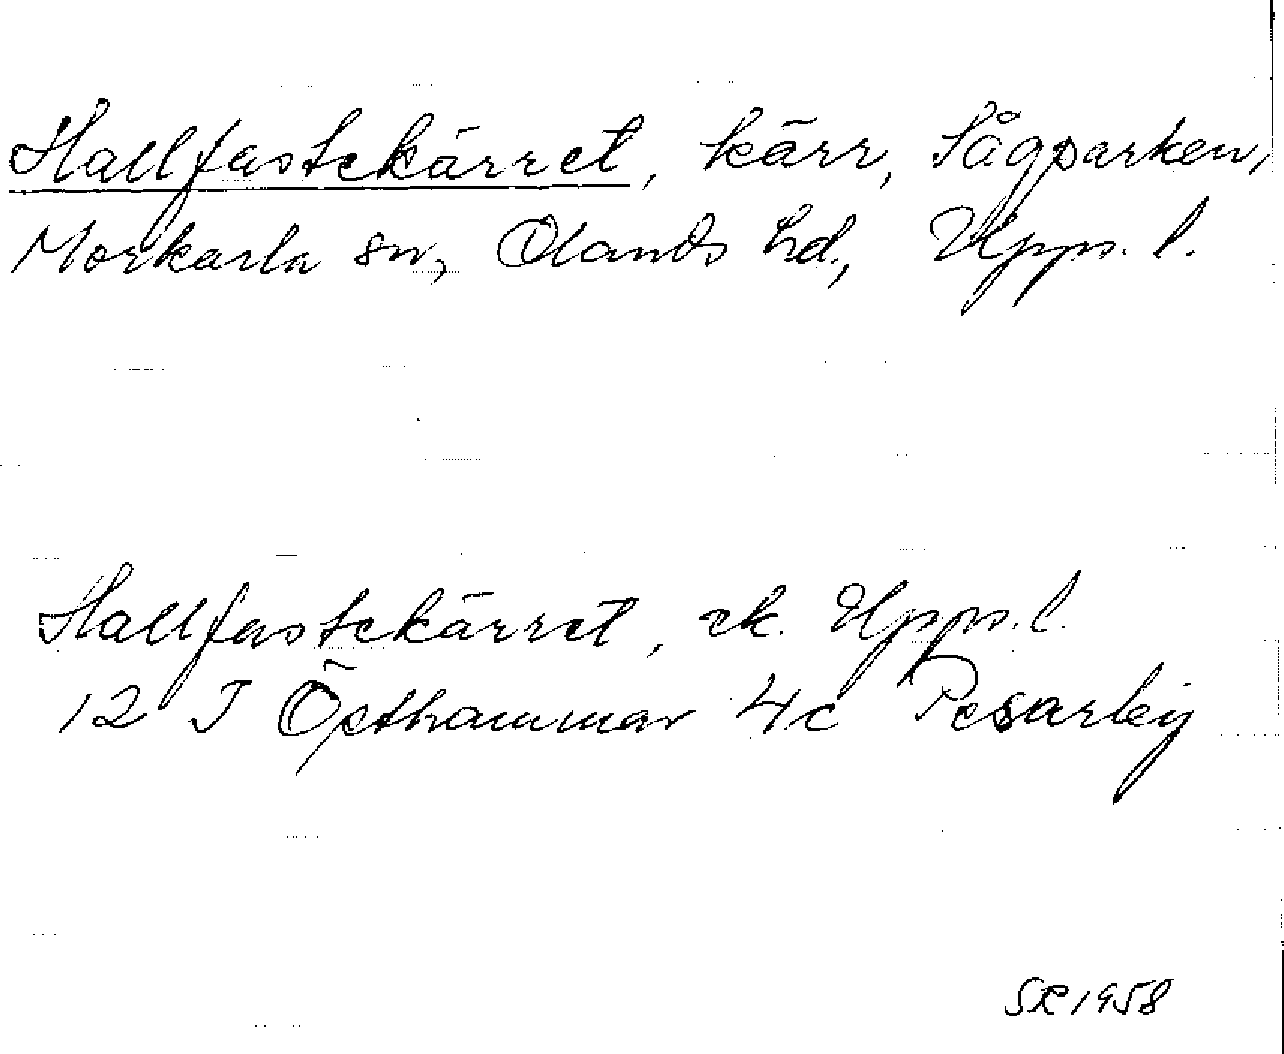 Hallfastekärret, kärr, Sågparken,
Morkarla sn, Olands hd., Upps. l.
Hallfastekärret, ek. Upps. l.
12 I Östhammar 4c Pesarby
SR 1958